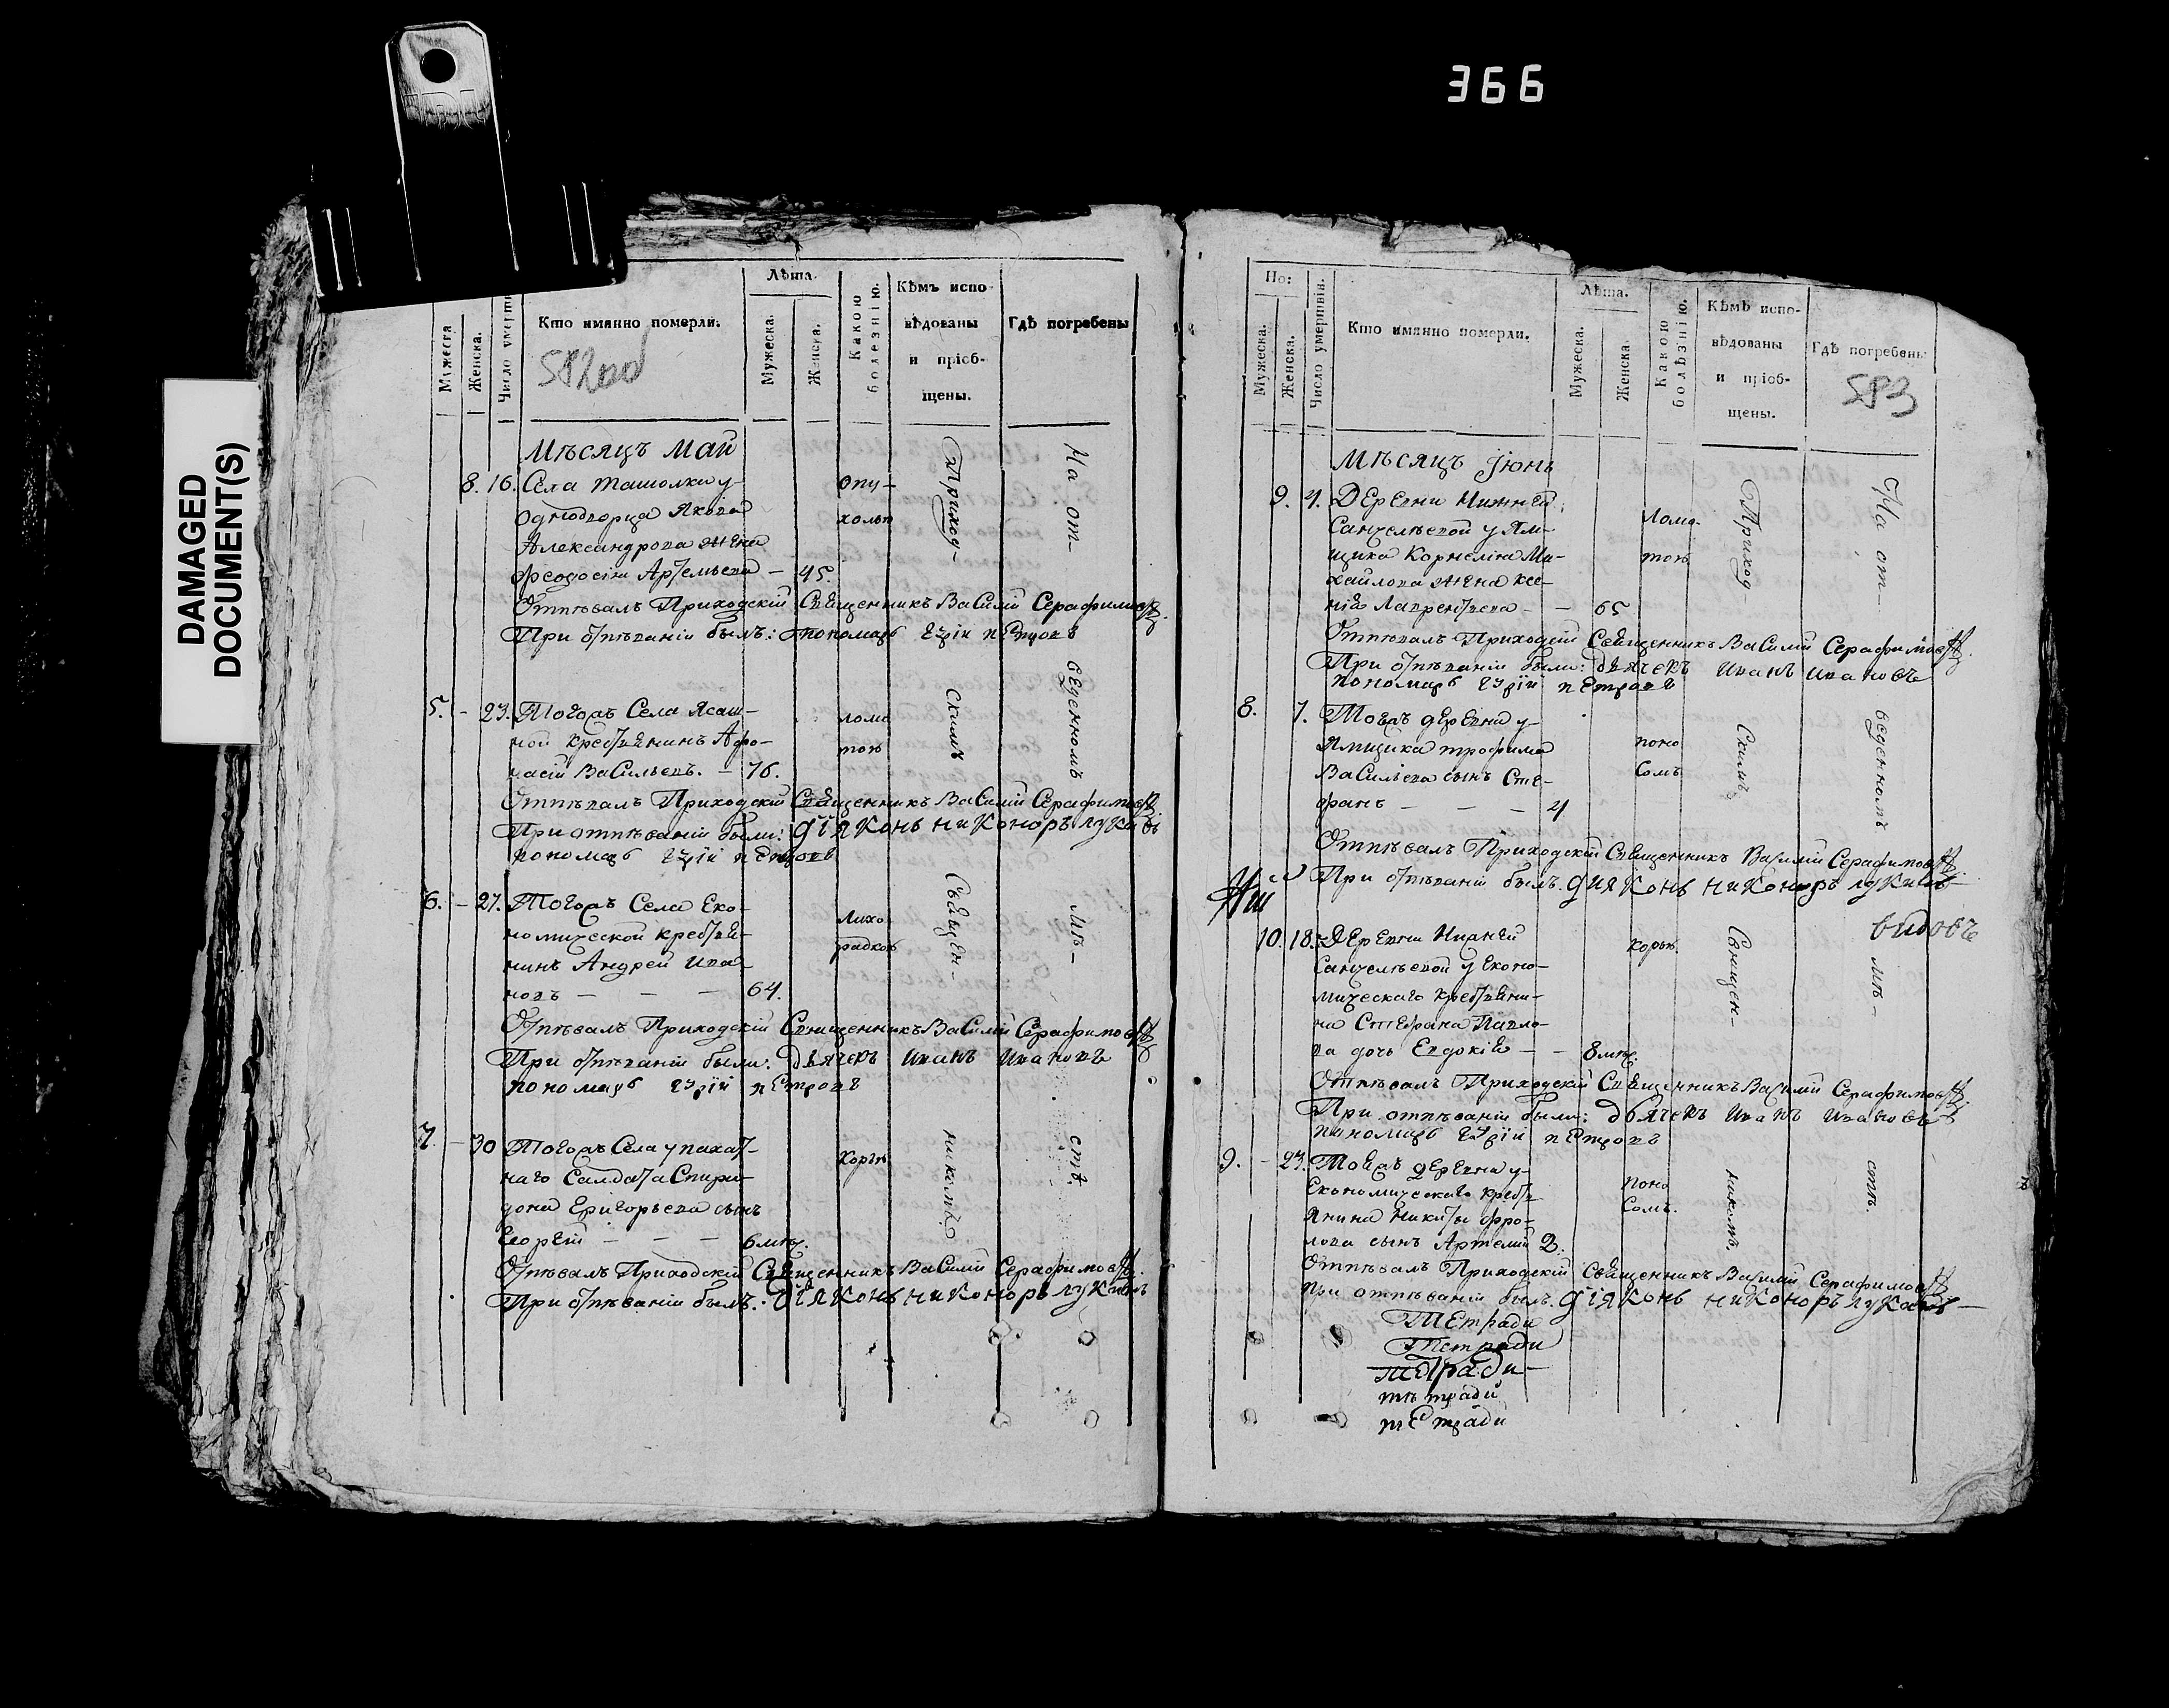 366
DAMAGED
DOCUMENT(S)
Мужеска
Женска.
Число умертвія
Кто имянно померли.
582об
Лѣта.
Мужеска.
Женска.
Какою
болезнію.
Кѣмъ испо-
вѣдованы
и пріоб-
щены.
Гдѣ погребены
Мѣсяцъ Май
8. 16. Села Ташолки у
однодворца Якова
Александрова жена
Феодосия Артемьева — 45.
опу-
холью
Отпѣвалъ Приходскій Священникъ Василій Серафимовъ
При отпѣваніи былъ: пономарь Гурій Петровъ
5. - 23. Тогожъ Села Ясаш-
ной крестьянинъ Афо-
насій Васильевъ. — 76.
ломо
тою
Отпѣвалъ Приходскій Священникъ Василій Серафимовъ
При отпѣваніи были: діяконъ никоноръ лукинъ
пономарь Гурій Петровъ
6. - 27. Тогожъ Села Еко-
номической крестья-
нинъ Андрей Ива-
новъ — — — 64.
лихо
радкою
Отпѣвалъ Приходскій Священникъ Василій Серафимовъ
При отпѣваніи были: дьячекъ Иванъ Ивановъ
пономарь Гурій Петровъ
7. - 30 Тогожъ Села у пахат-
наго Салдата Спири-
дона Григорьева сынъ
Георгій — — — 6 мѣс.
корью
Отпѣвалъ Приходскій Священникъ Василій Серафимовъ
При отпѣваніи былъ: діяконъ никоноръ лукинъ
Приход-
скимъ
Священ-
никомъ
На от-
веденномъ
мѣ-
стѣ.
По:
Мужеска.
Женска.
Число умертвія.
Кто имянно померли.
Лѣта.
Мужеска.
Женска.
Какою
болѣзнію.
Кѣмъ испо-
вѣдованы
и пріоб-
щены.
Гдѣ погребены
583
Мѣсяцъ Іюнь
9. 4. Деревни Нижней
Санчелѣевой у Ям-
щика Корнелія Ми-
хайлова жена Ксе-
нія Лаврентьева — — 65
Ломо-
тою
Отпѣвалъ Приходскій Священникъ Василій Серафимовъ
При отпѣваніи были: дьячекъ Иванъ Ивановъ
пономарь Гурій Петровъ
8. 7. Тояжъ деревни у
Ямщика Трофима
Васильева сынъ Сте-
фанъ — — — 4
поно
сомъ
Отпѣвалъ Приходскій Священникъ Василій Серафимовъ
При отпѣваніи былъ: дияконъ никоноръ лукинъ
10. 18. Деревни Нижней
Санчелѣевой у Эконо-
мическаго крестьяни-
на Стефана Павло-
ва дочь Евдокія — — 8 мѣс.
корью.
Отпѣвалъ Приходскій Священникъ Василій Серафимовъ
При отпѣваніи были: дьячекъ Иванъ Ивановъ
пономарь Гурій Петровъ
9. - 23. Тояжъ деревни у
Економическаго крестья
янина Никиты Фро-
лова сынъ Артемій 2.
поно
сомъ.
Отпѣвалъ Приходскій Священникъ Василій Серафимовъ
При отпѣваніи былъ: діяконъ никоноръ лукинъ
Приход
скимъ
Священ-
никомъ.
На от-
веденномъ
мѣ-
стѣ.
Тетради
Тетради
тетради
тетради
тетради